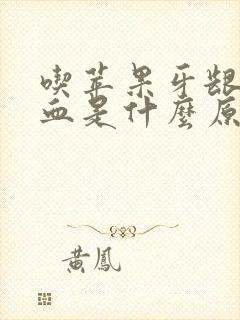 喫苹果牙龈
血是什麼原
黃鳳